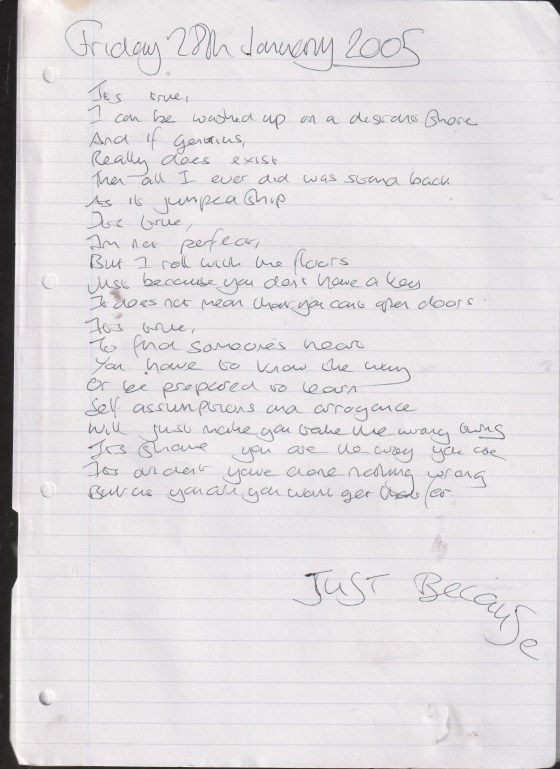 Friday 28th January 2005
Its true,
I can be washed up on a distant shore
And if genius,
Really does exist
Then all I ever did was stand back
As it jumped ship
Its true,
Im not perfect,
But I roll with the floors
Just because you don't have a key
It does not mean that you cant open doors
Its true,
To find someones heart
You have to know the way
Or be prepared to learn
Self assumptions and arrogance
Will just make you take the wrong turns
Its shame you are the way you are
Its alright youve done nothing wrong
But as you are you wont get far
Just Because